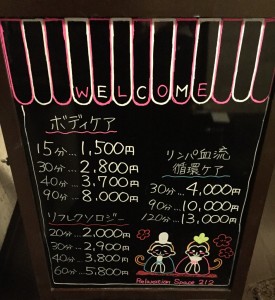 WELCOME
ボディケア
15分…1,500円
30分…2,800円
40分…3,700円
90分…8,000円
リフレクソロジー
20分…2,000円
30分…2,900円
40分…3,800円
60分…5,800円
リンパ血流
循環ケア
30分…4,000円
90分…10,000円
120分…13,000円
Relaxation Space 212